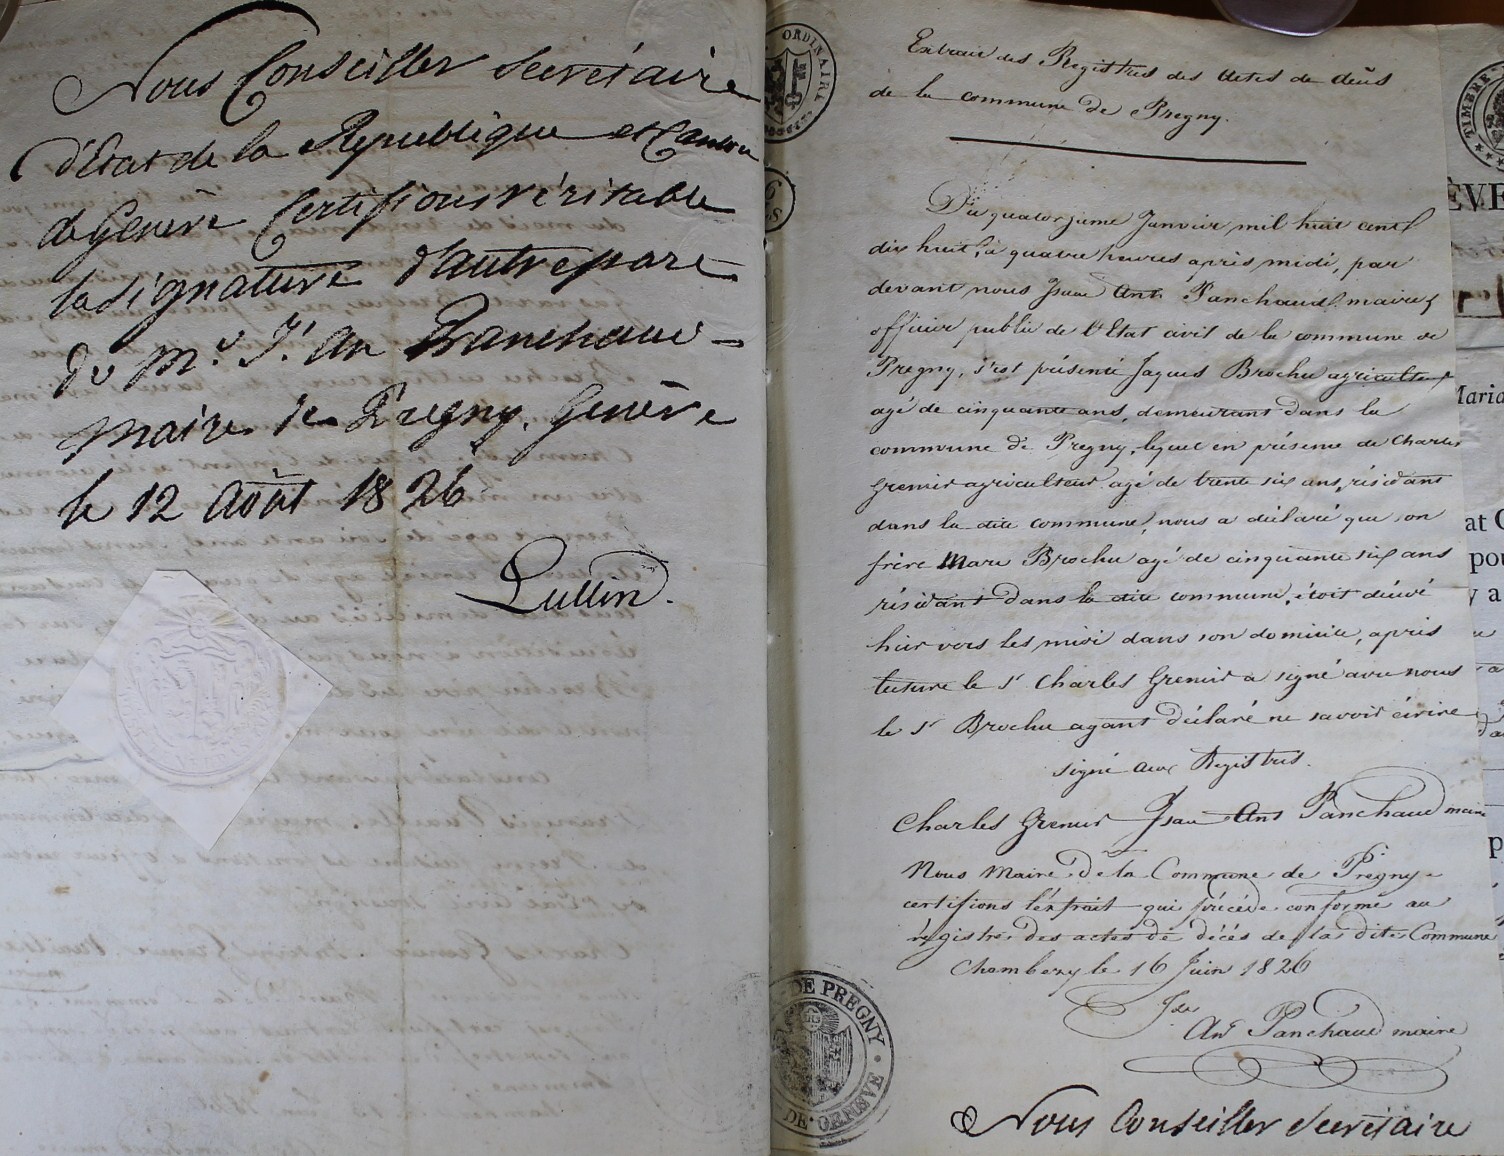 Nous Conseiller Secretaire
d'Etat de la Republique et Canton
de Genève Certifions véritable
la signature d'autre part
du Mr. Jc. An Panchaud
maire de Pregny. Genève
le 12 Août 1826
Lullin.
ORDINAIRE
Extrait des Registres des Actes de décès
de la commune de Pregny.
Du quatorzieme Janvier mil huit cent
dix huit, à quatre heures après midi, par
devant nous Isaac Ant. Panchaud maire &
officier public de l'Etat civil de la commune de
Pregny, s'est présenté Jaques Brochu agriculteur
agé de cinquante ans, demeurant dans la
commune de Pregny, lequel en présence de Charles
Grenier agriculteur agé de trente six ans, résidant
dans la dite commune, nous a déclaré que son
frère Marc Brochu agé de cinquante six ans
résidant dans la dite commune, étoit décédé
hier vers les midi dans son domicile, après
lecture le Sr Charles Grenier a signé avec nous
le Sr Brochu ayant déclaré ne savoir écrire
signé aux Registres.
Charles Grenier Isaac Ant Panchaud maire
Nous Maire de la Commune de Pregny
certifions l'extrait qui précède conforme au
régistre des actes de décès de la dite Commune
Chambezy le 16 Juin 1826
Isac
Ant Panchaud maire
DE PREGNY
Nous Conseiller Secretaire
TIMBRE
ÈVE
Maria
at
pou
y a